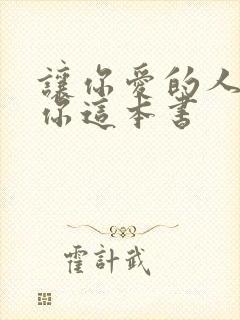 讓你愛的人
你這本書
霍計武